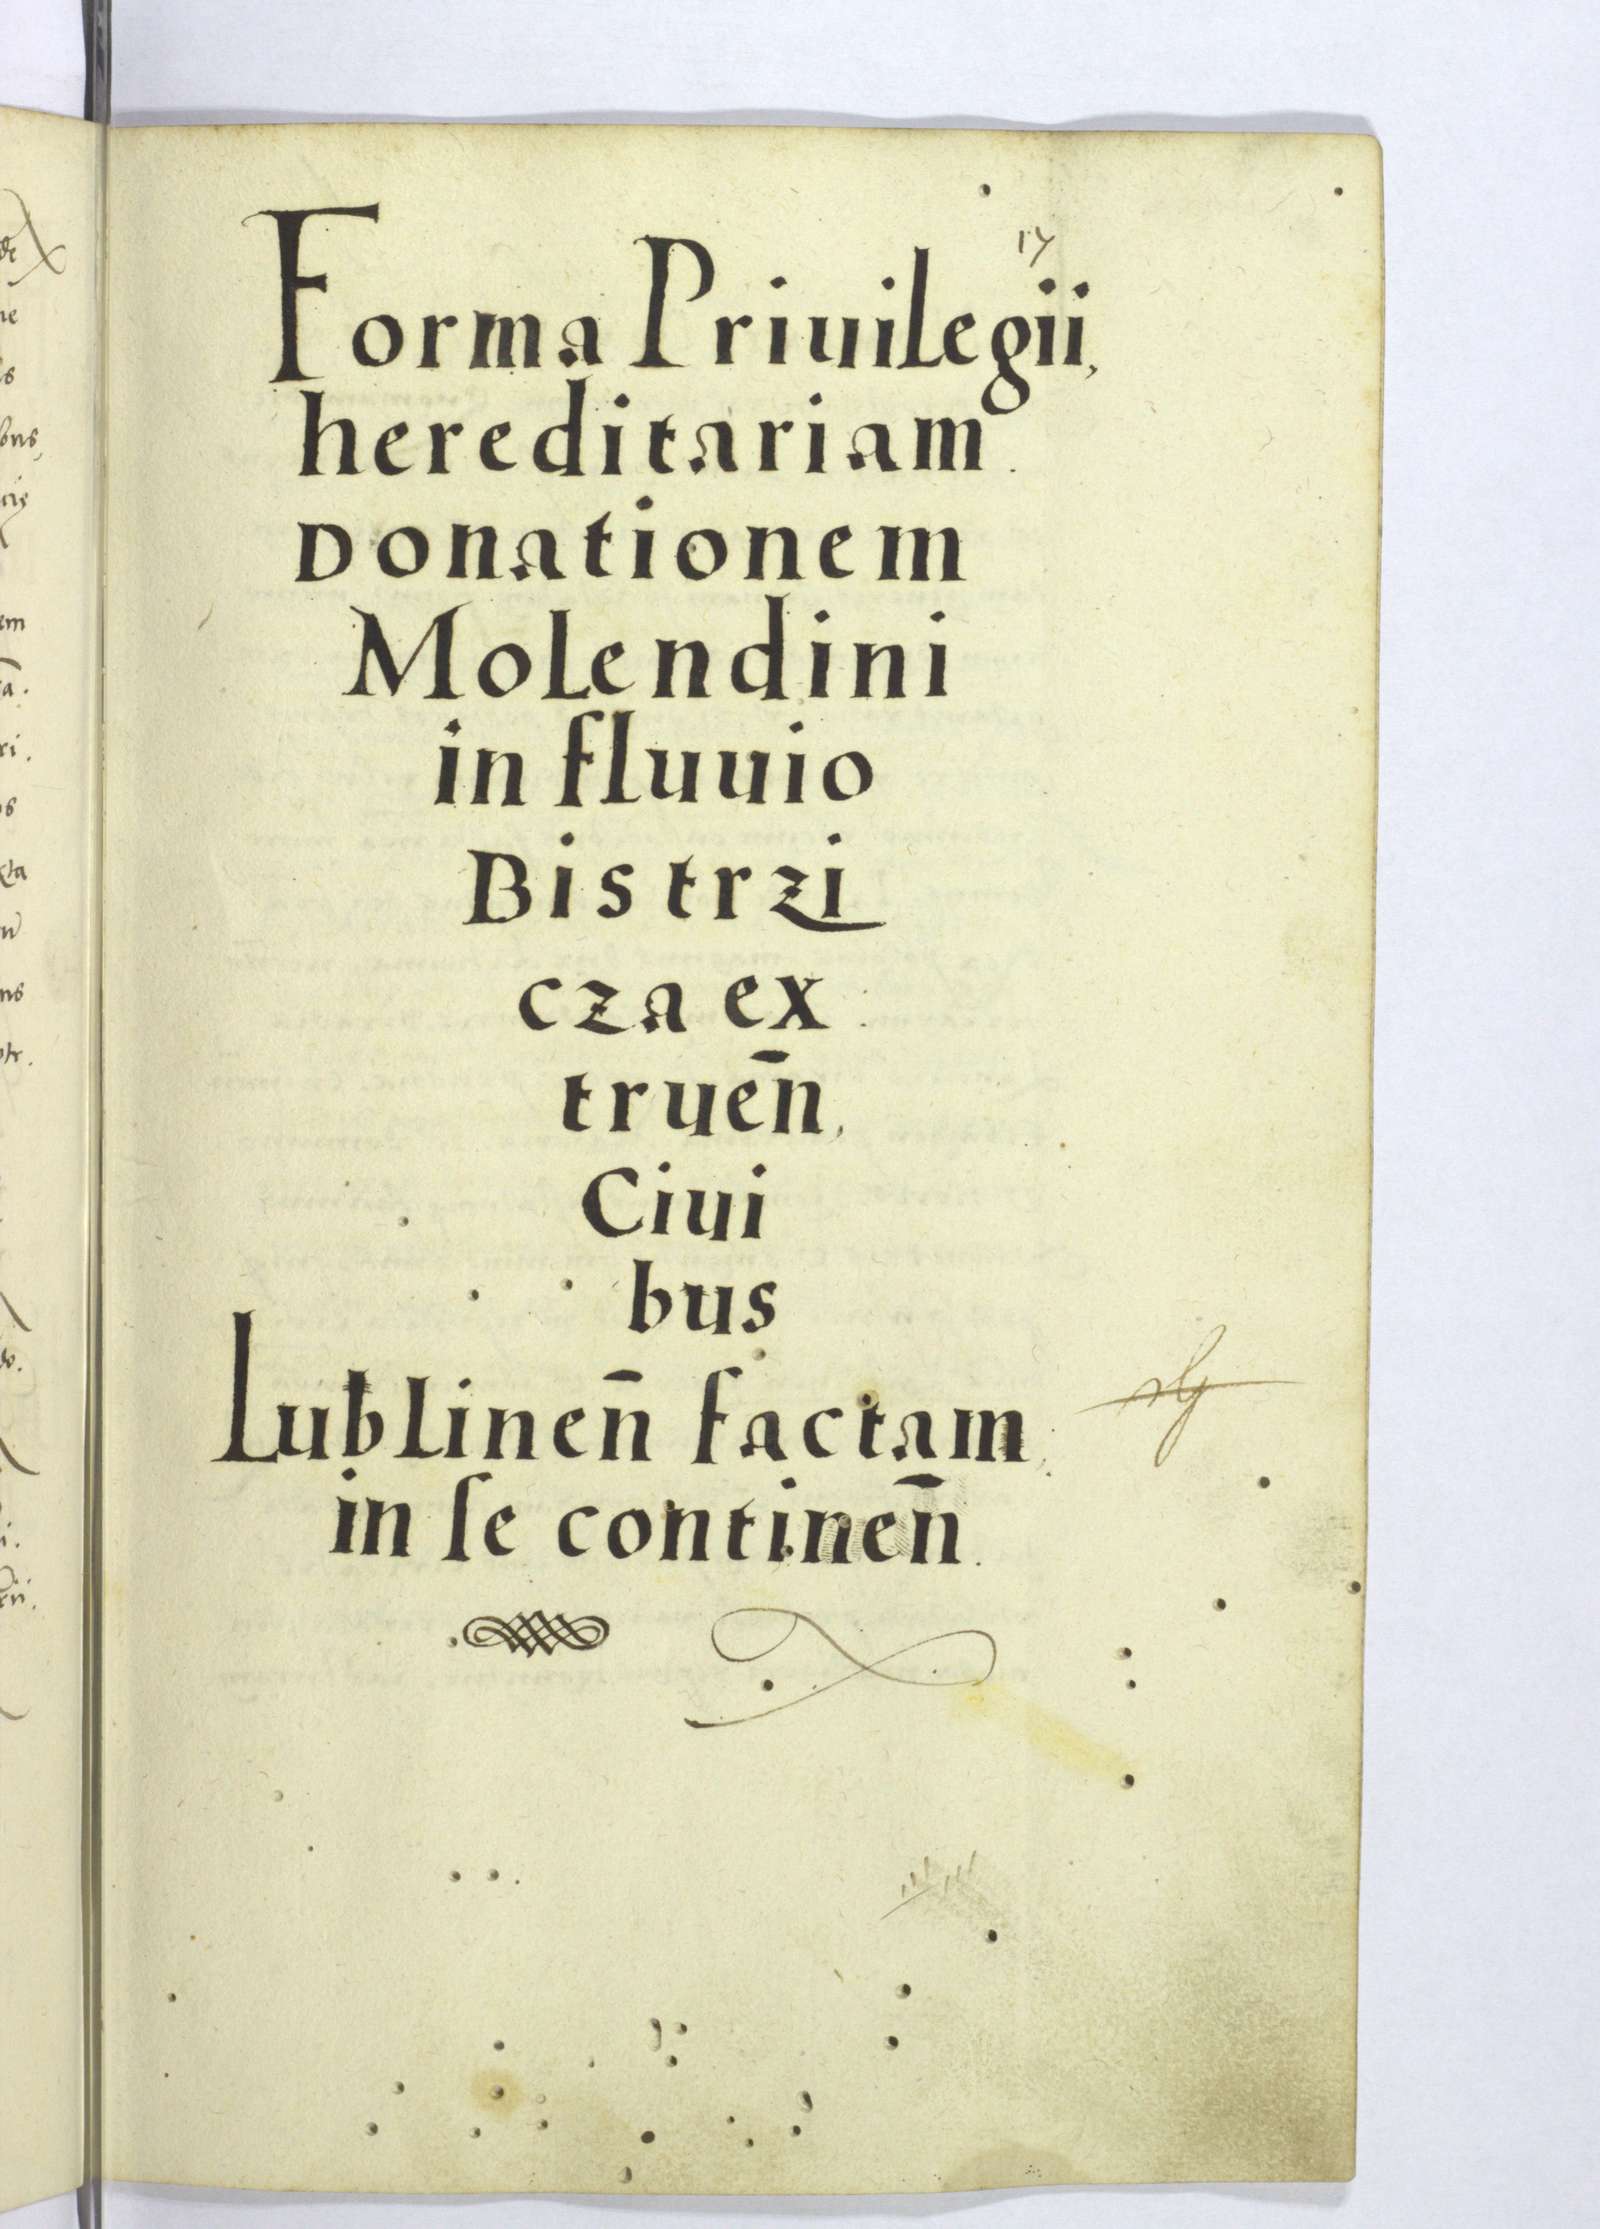 17
Forma Priuilegii,
hereditariam
Donationem
Molendini
in fluuio
Bistrzi
cza ex
truen̄,
Ciui
bus
Lublinen̄ factam,
in se continen̄.